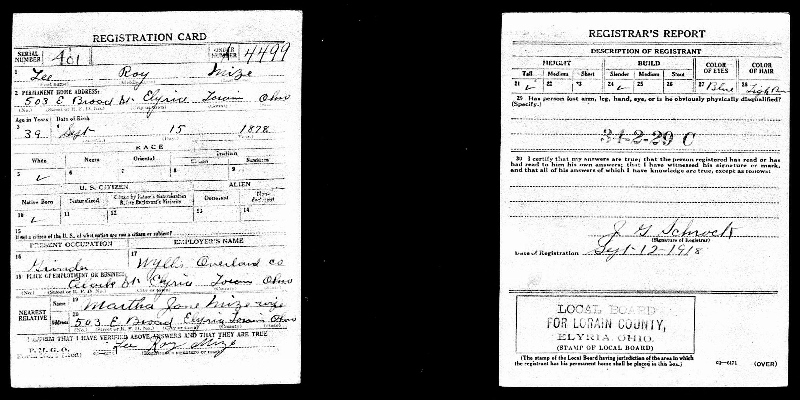 REGISTRATION CARD
SERIAL NUMBER 401 ORDER NUMBER A4499
1 Lee Roy Mize
2 PERMANENT HOME ADDRESS:
503 E Broad St Elyria Lorain Ohio
Age in Years Date of Birth
3 39 4 Sept 15 1878
RACE
White Negro Oriental Indian
Citizen Noncitizen
5 ✓ 6 7 8 9
U. S. CITIZEN ALIEN
Native Born Naturalized Citizen by Father's Naturalization Before Registrant's Majority Declarant Non-declarant
10 ✓ 11 12 13 14
15
If not a citizen of the U. S., of what nation are you a citizen or subject?
PRESENT OCCUPATION EMPLOYER'S NAME
16 Grinder 17 Wyllis Overland Co
18 PLACE OF EMPLOYMENT OR BUSINESS:
St Elyria Lorain Ohio
(No.) (Street or R. F. D. No.) (City or town) (County) (State)
NEAREST RELATIVE
Name 19 Martha Jane Mize wife
Address 20 503 E Broad Elyria Lorain Ohio
(No.) (Street or R. F. D. No.) (City or town) (County) (State)
I AFFIRM THAT I HAVE VERIFIED ABOVE ANSWERS AND THAT THEY ARE TRUE
P. M. G. O.
Lee Roy Mize
REGISTRAR'S REPORT
DESCRIPTION OF REGISTRANT
HEIGHT BUILD COLOR OF EYES COLOR OF HAIR
Tall Medium Short Slender Medium Stout
21 ✓ 22 23 24 ✓ 25 26 27 Blue 28
29 Has person lost arm, leg, hand, eye, or is he obviously physically disqualified?
(Specify.)
34-2-29 C
30 I certify that my answers are true; that the person registered has read or has
had read to him his own answers; that I have witnessed his signature or mark,
and that all of his answers of which I have knowledge are true, except as follows:
J G Schrock
(Signature of Registrar)
Date of Registration Sept-12-1918
LOCAL BOARD
FOR LORAIN COUNTY,
ELYRIA, OHIO.
(STAMP OF LOCAL BOARD)
(The stamp of the Local Board having jurisdiction of the area in which
the registrant has his permanent home shall be placed in this box.)
03—6171 (OVER)